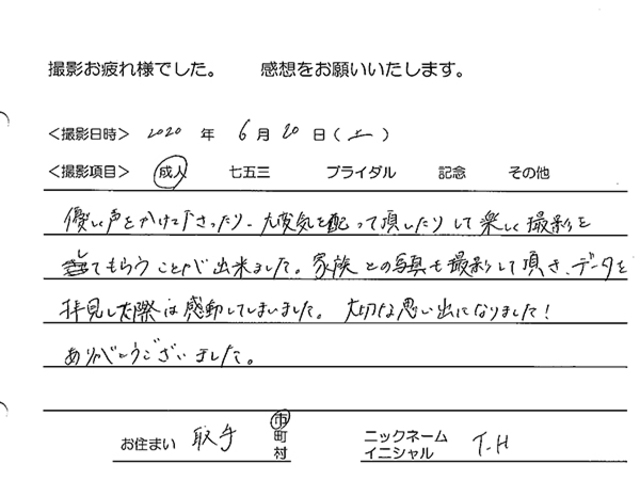 撮影お疲れ様でした。 感想をお願いいたします。
＜撮影日時＞ 2020 年 6 月 20 日 ( 土 )
＜撮影項目＞ 成人 七五三 ブライダル 記念 その他
優しい声をかけて下さったり、大変気を配って頂したりして楽しく撮影を
してもらうことが出来ました。家族との写真も撮影して頂き、データを
拝見した際は感動してしまいました。大切な思い出になりました！
ありがとうございました。
お住まい 取手 市 町 村
ニックネーム イニシャル T.H